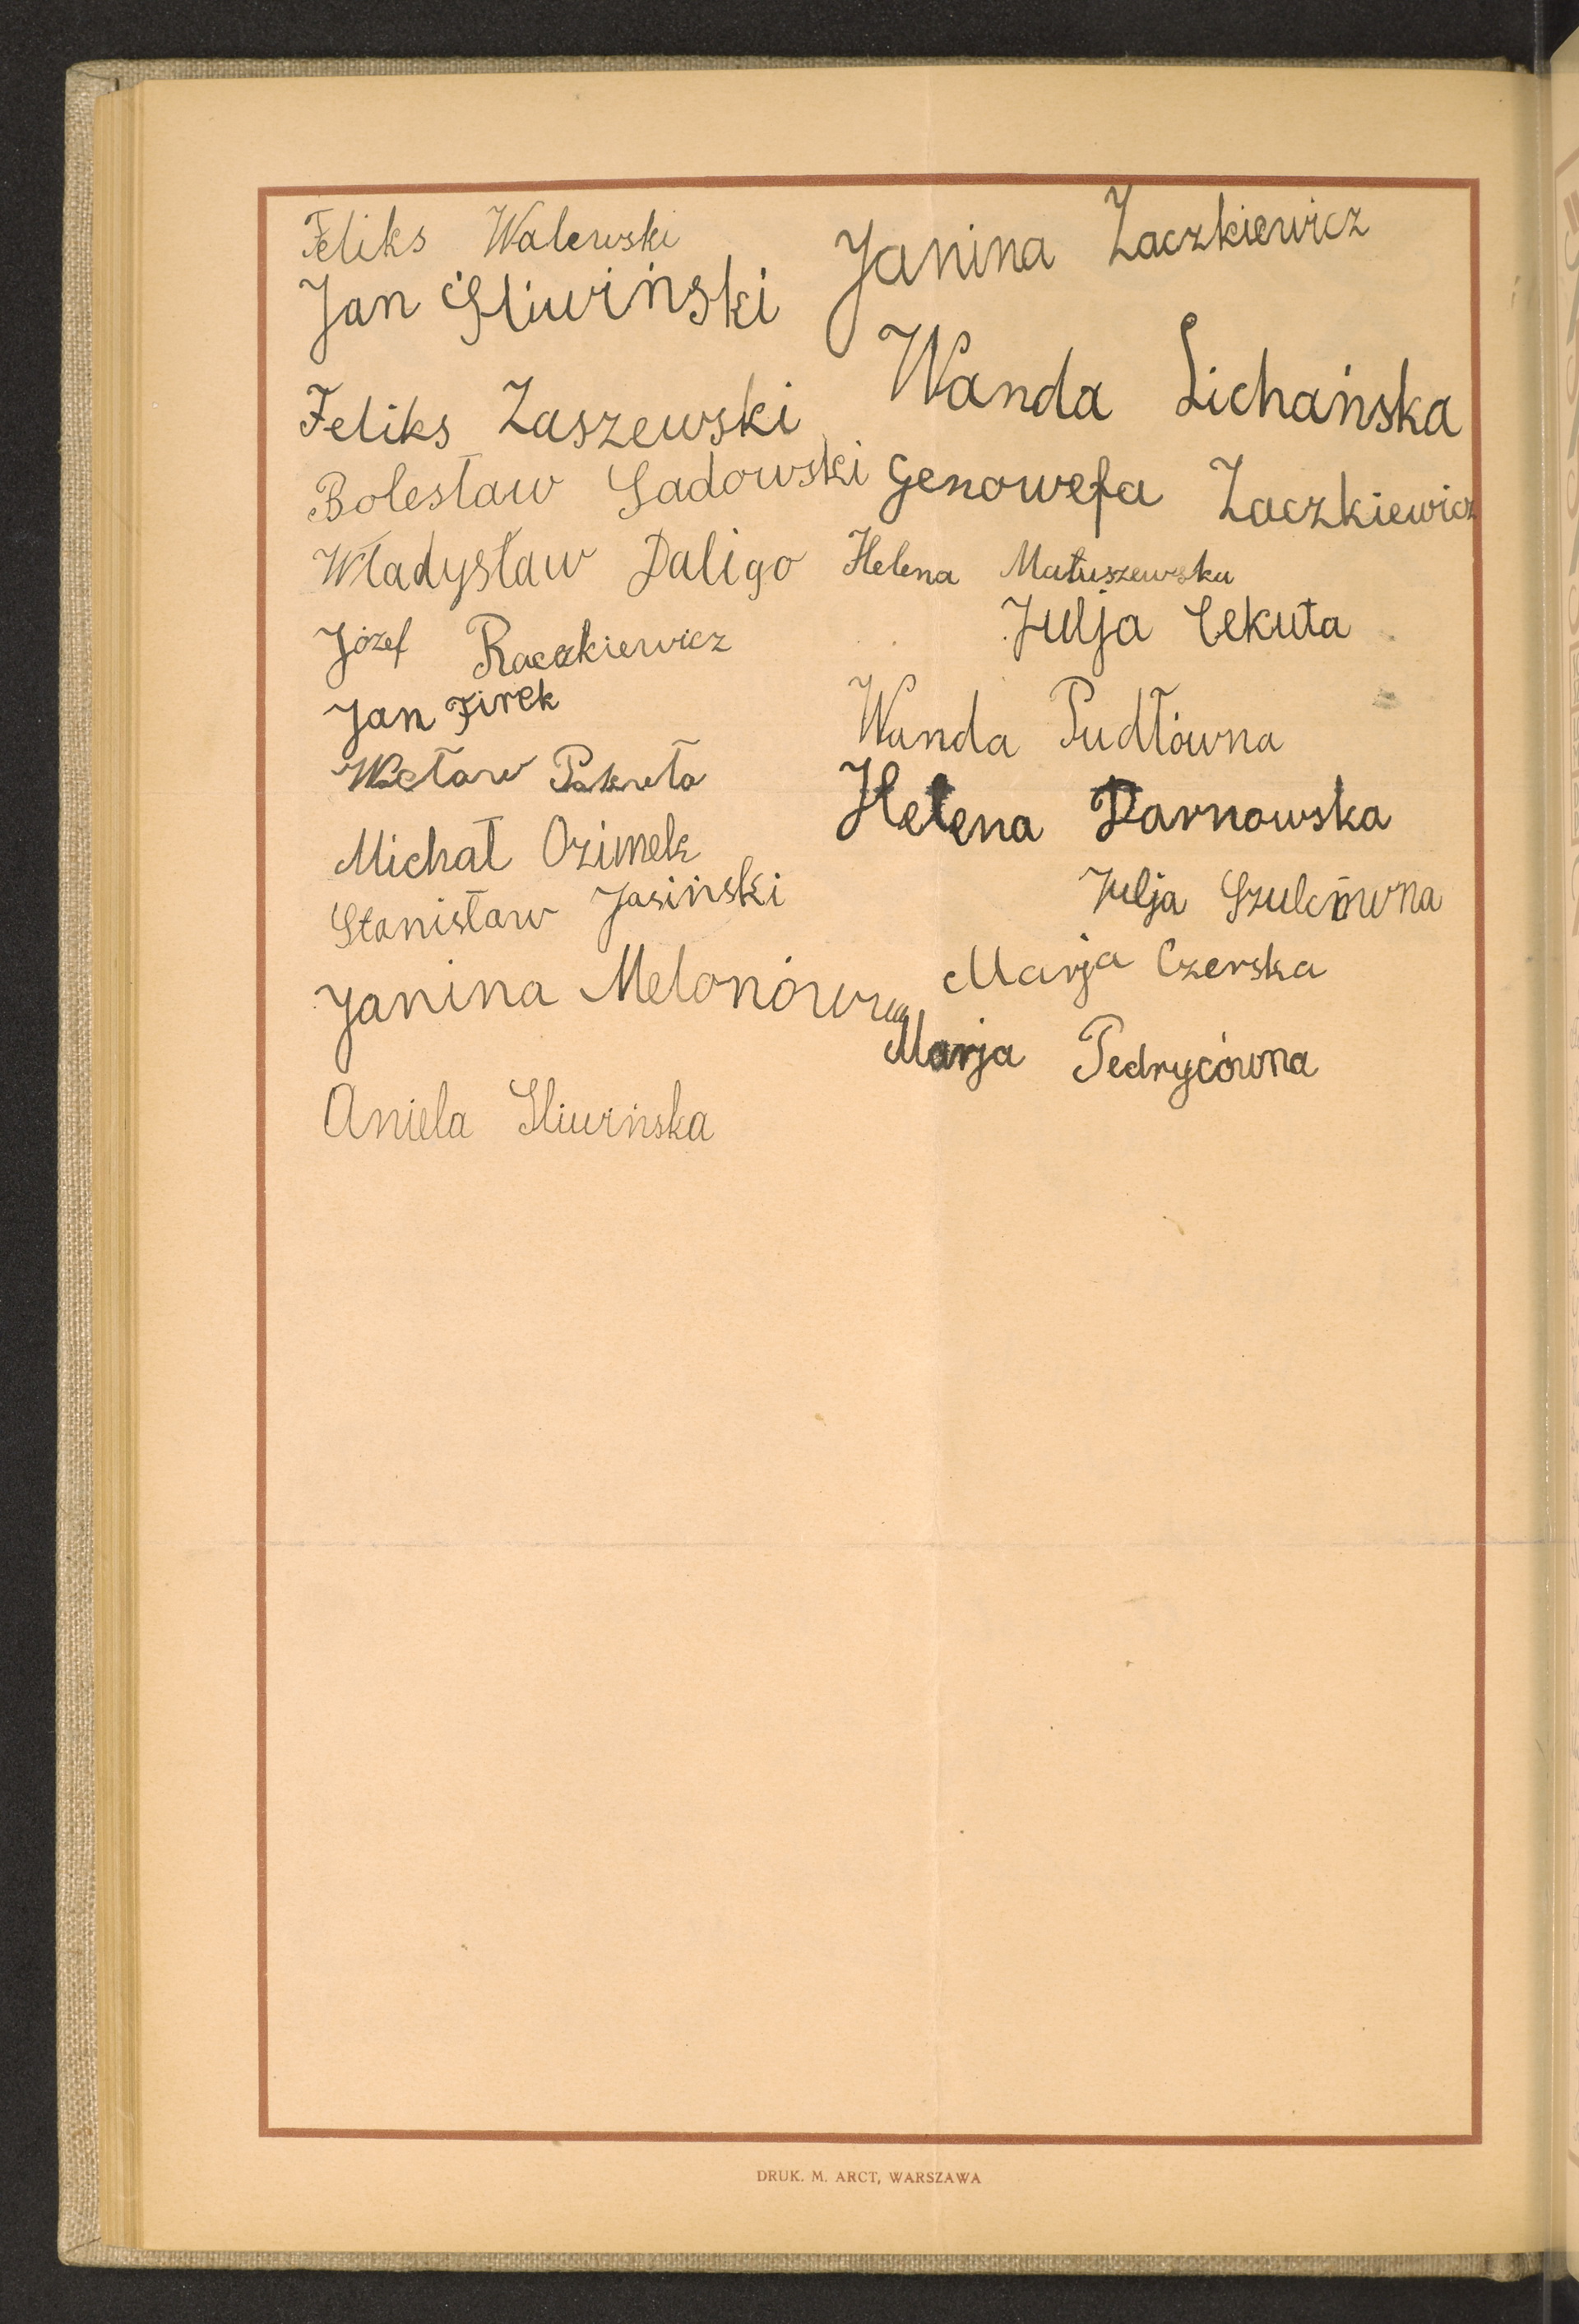 Feliks Walewski
Jan Śliwiński
Feliks Zaszewski
Bolesław Sadowski
Władysław Daligo
Józef Raczkiewicz
Jan Firek
Wacław
Michał Ozimek
Stanisław Jasiński
Janina Melonówna
Aniela Śliwińska
Janina Zaczkiewicz
Wanda Lichańska
Genowefa Zaczkiewicz
Helena Matuszewska
Julja Cekuta
Wanda Pudłówna
Helena Darnowska
Julja Szulcówna
Marja Czerska
Marja Pedrycówna
DRUK. M. ARCT, WARSZAWA